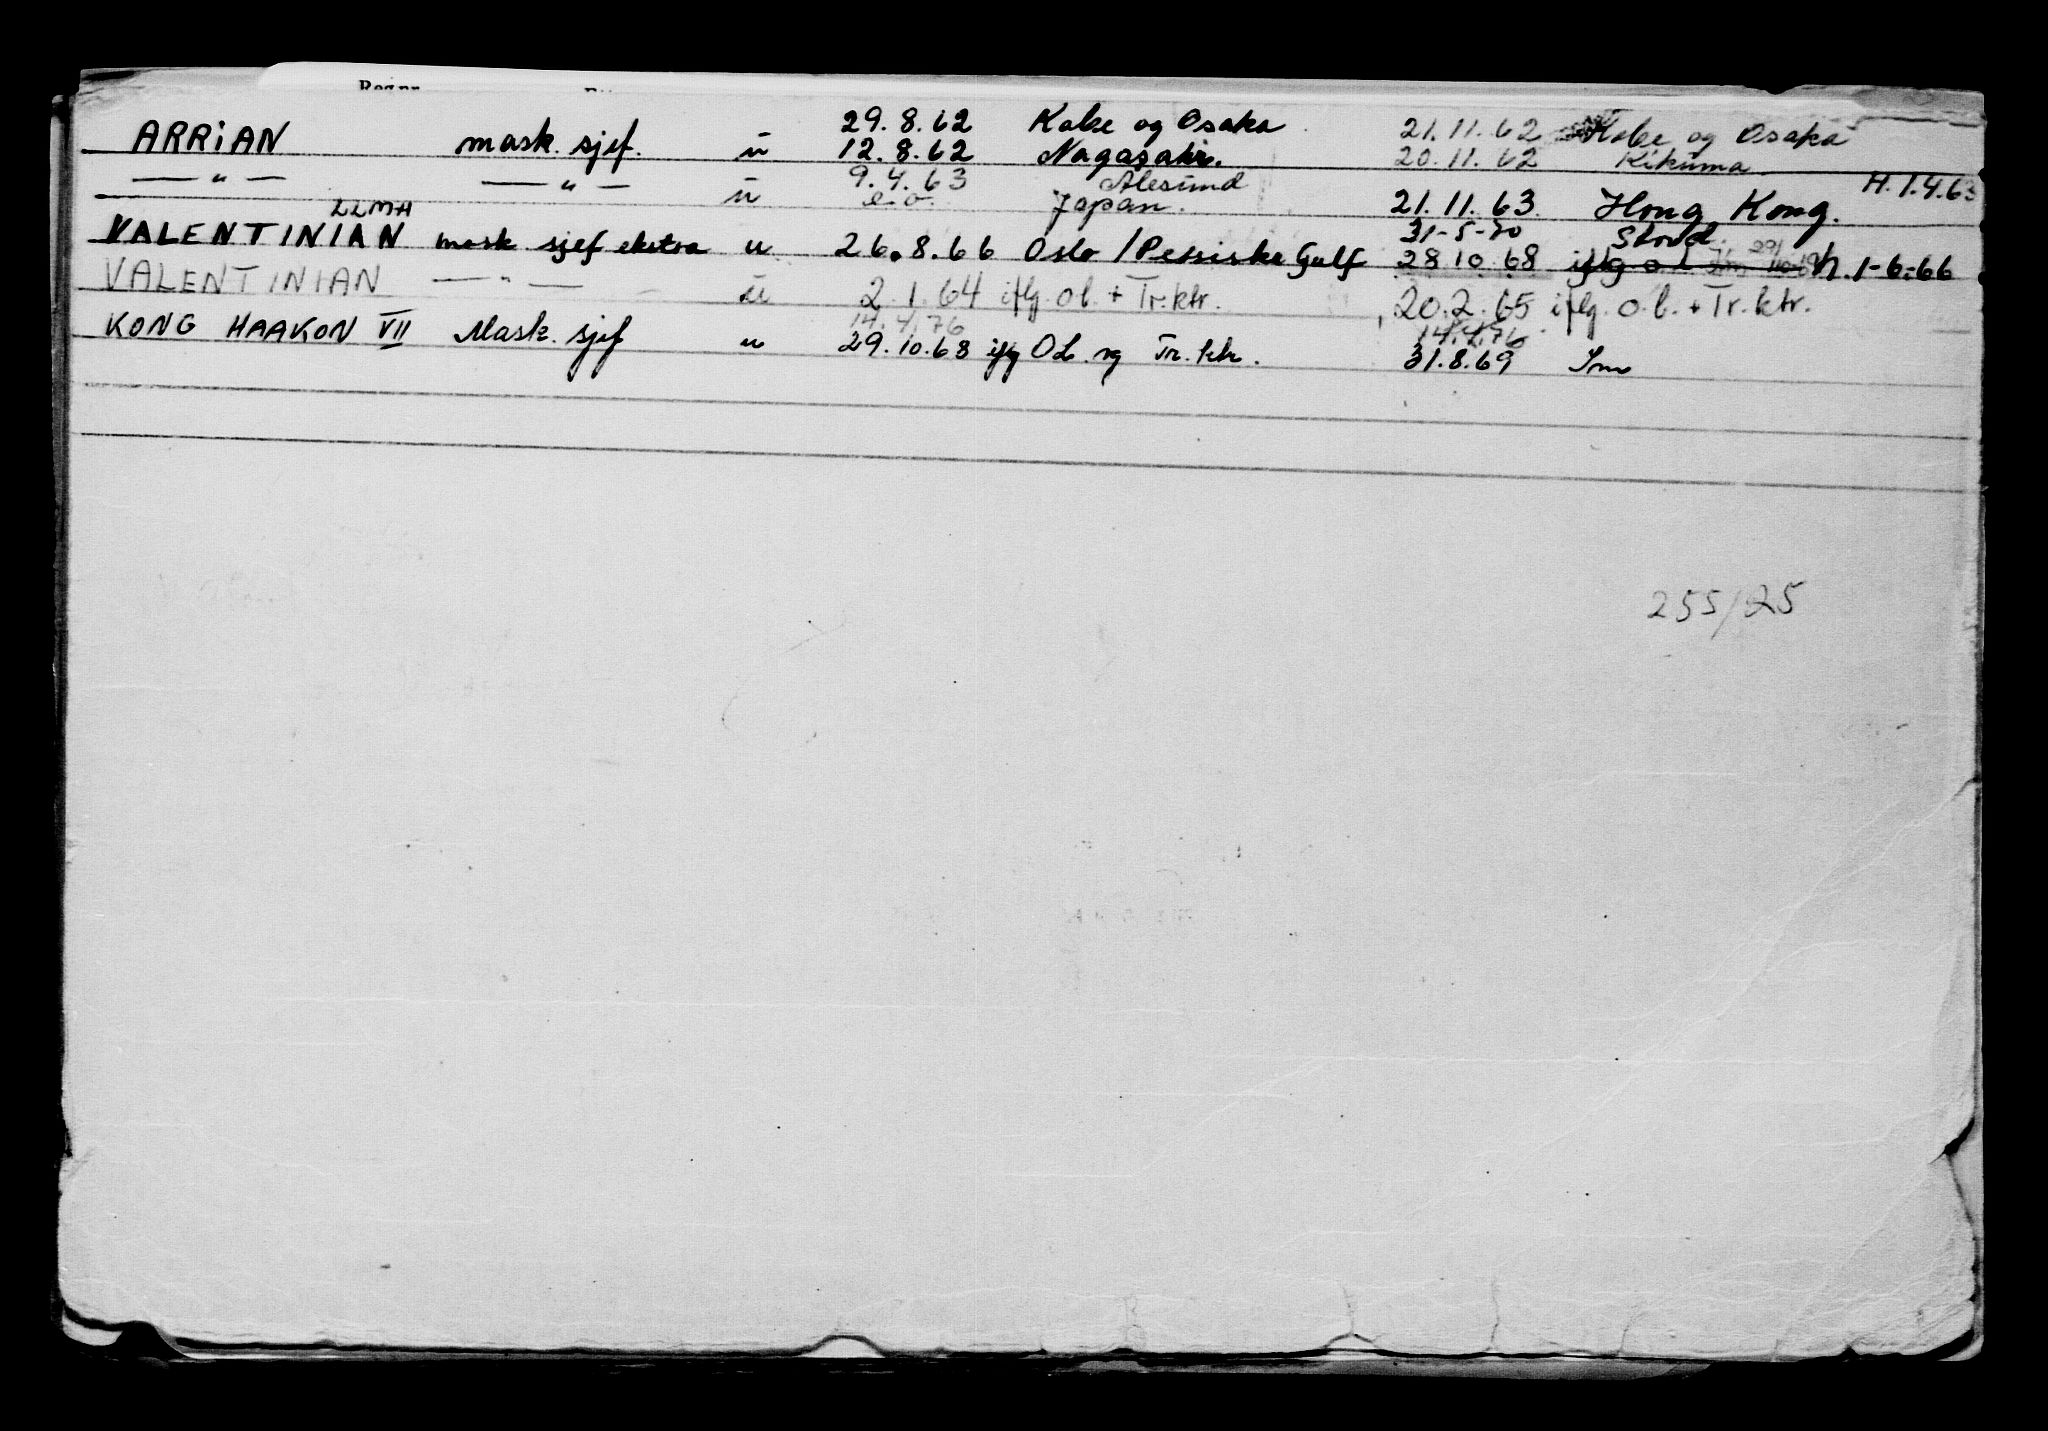 Reg.nr.
29.8.62 Kobe og Osaka 21.11.62 Kobe og Osaka
ARRiAN mask. sjef. u 12.8.62 Nagasaki. 20.11.62 Kikuma
9.4.63 Alesund H. 1.4.63
— " — — " — u e.o. Japan. 21.11.63 Hong Kong.
LLMH 31-5-70 Stord.
VALENTINIAN mask sjef ekstra u 26.8.66 Oslo / Persiske Gulf 28 10.68 iflg o l 29/10 h. 1-6-66
VALENTINIAN — " — u 2.1.64 iflg. o.l. + Tr.ktr. 20.2.65 iflg. o.l. + Tr.ktr.
14.4.76 14.4.76
KONG HAAKON VII Mask. sjef u 29.10.68 iflg OL. og Tr. ktr. 31.8.69
255/25